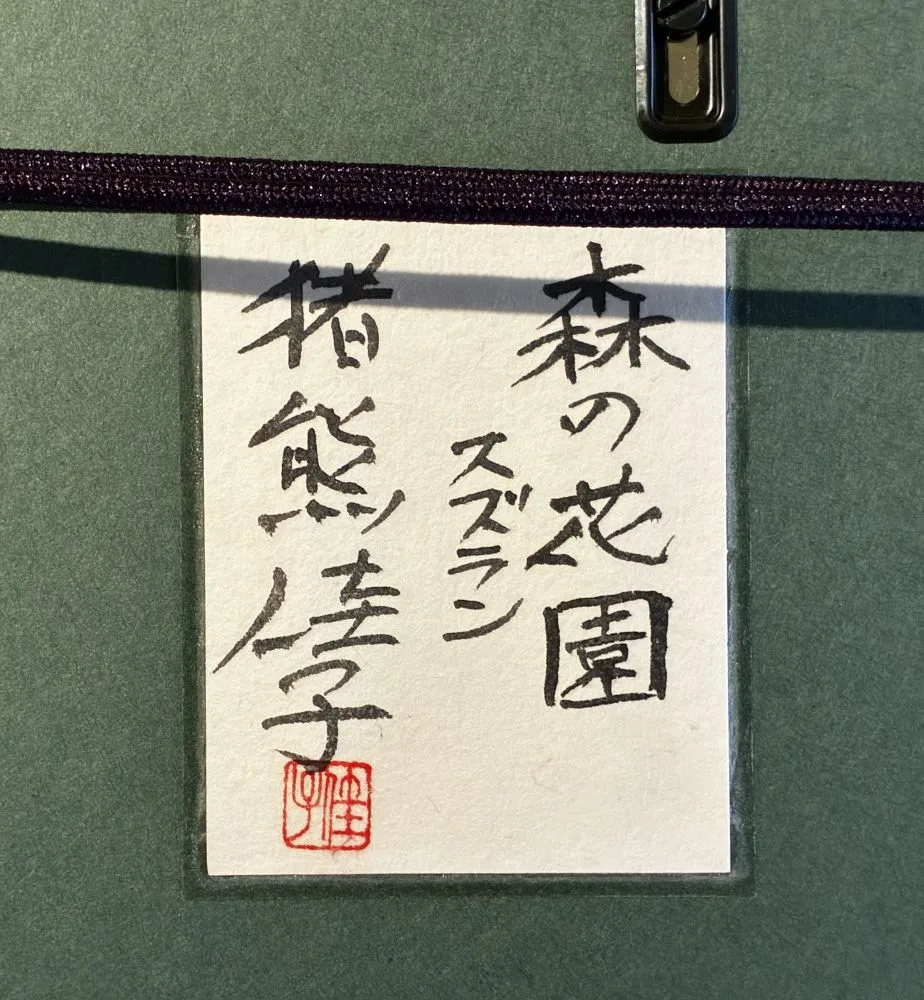 森の花園
スズラン
猪熊佳子
佳子